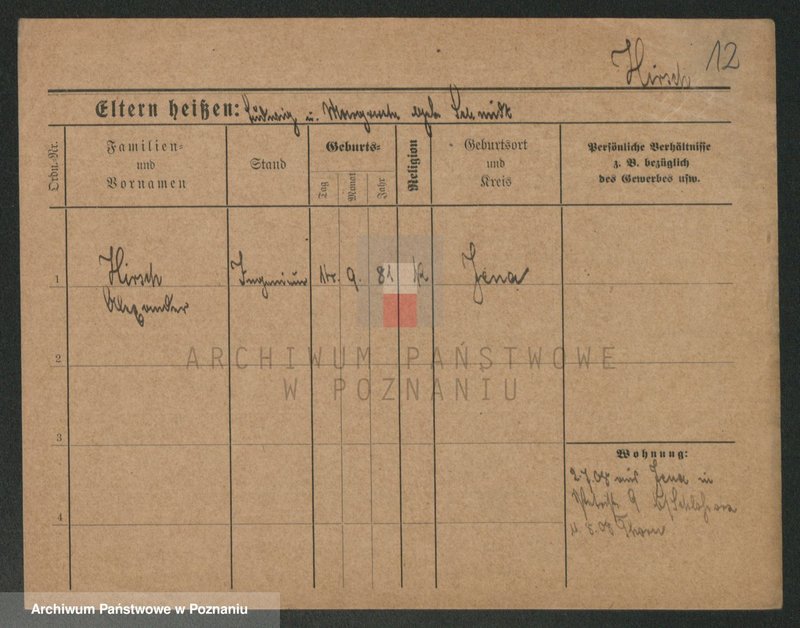 Hirsch 12
Eltern heißen: Ludwig u. Margarete geb. Schmidt
Ordn.-Nr.
Familien-
und
Vornamen
Stand
Geburts-
Tag
Monat
Jahr
Religion
Geburtsort
und
Kreis
Persönliche Verhältnisse
z. B. bezüglich
des Gewerbes usw.
1
Hirsch
Alexander
Ingenieur
9.
81
Jena
ARCHIWUM PAŃSTWOWE
W POZNANIU
2
3
4
Wohnung:
2.7.08 aus Jena in
9 b/Schloss
8.08 Thorn
Archiwum Państwowe w Poznaniu